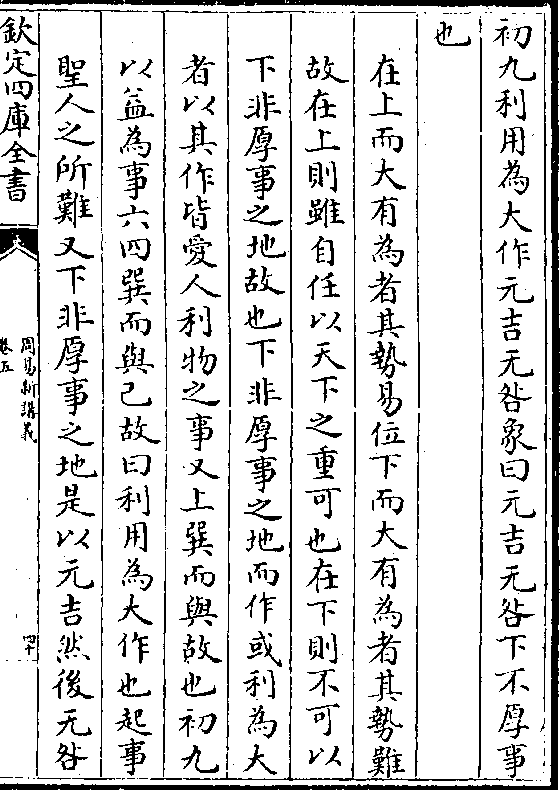 初九利用為大作元吉无咎象曰元吉无咎下不厚事
也
在上而大有為者其勢易位下而大有為者其勢難
故在上則雖自任以天下之重可也在下則不可以
下非厚事之地故也下非厚事之地而作或利為大
者以其作皆愛人利物之事又上巽而與故也初九
以益為事六四巽而與己故曰利用為大作也起事
聖人之所難又下非厚事之地是以元吉然後无咎
欽定四庫全書
周易新講義
卷五
四十